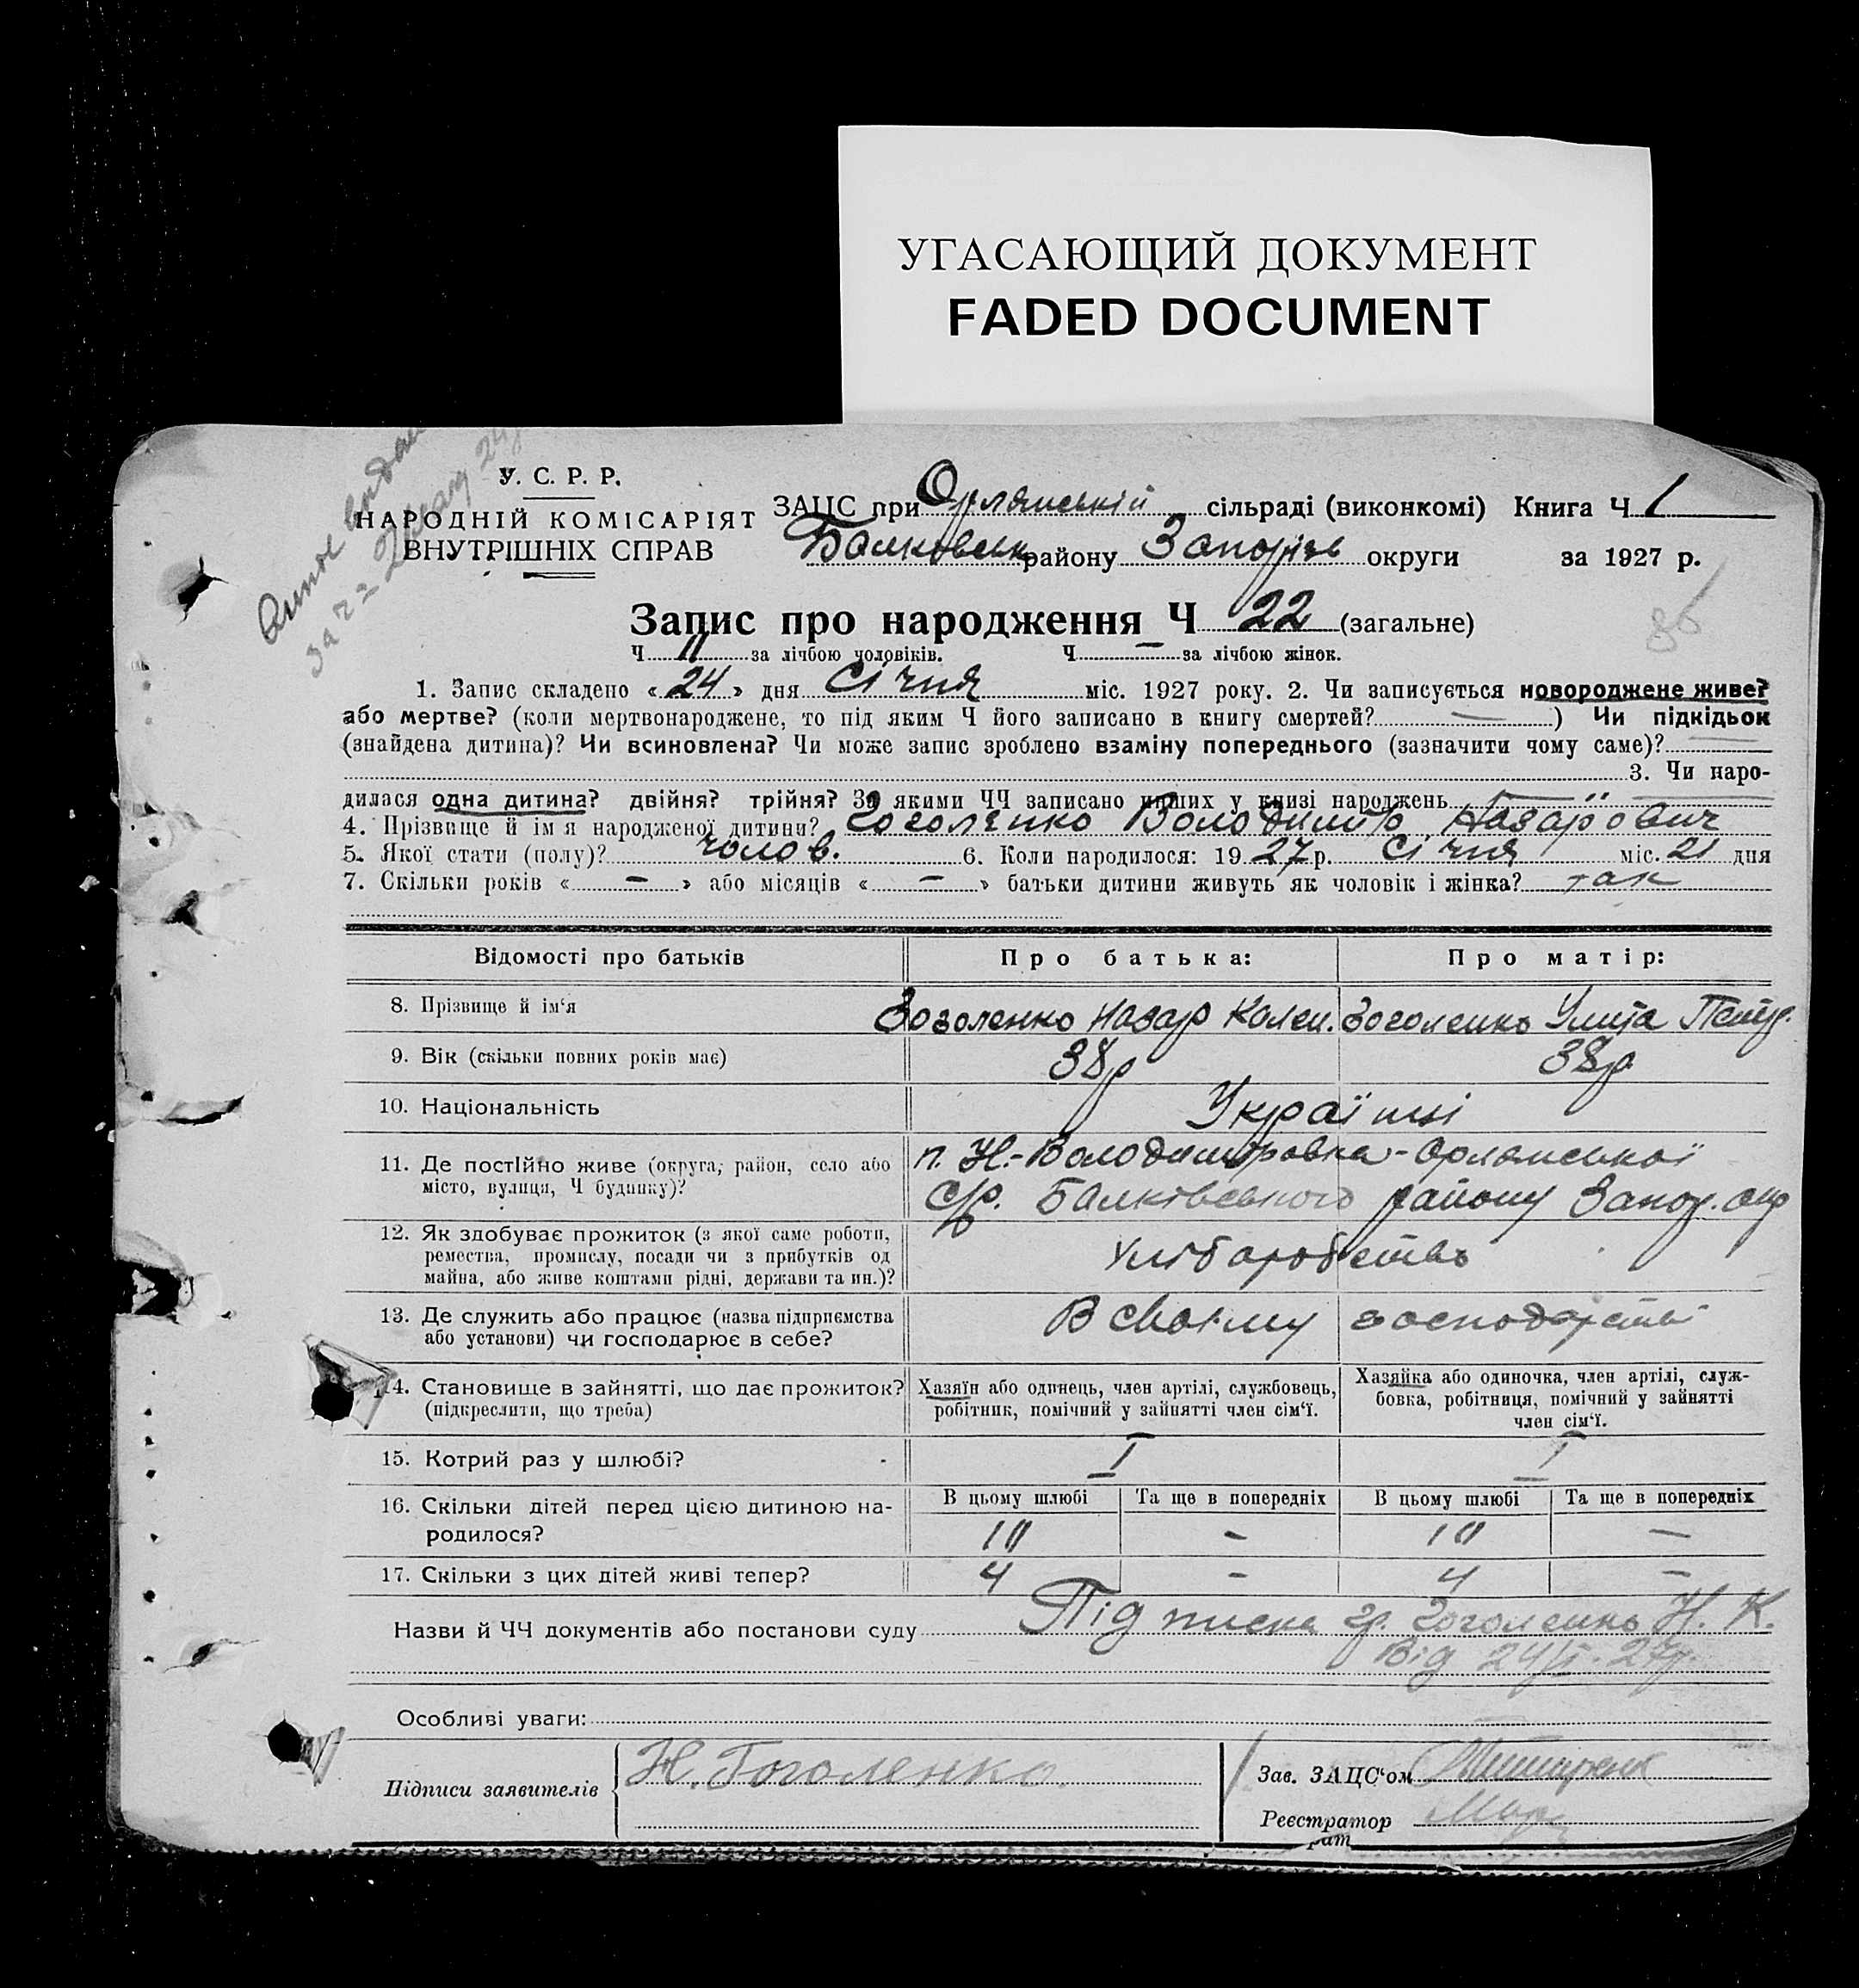 УГАСАЮЩИЙ ДОКУМЕНТ
FADED DOCUMENT
У. С. Р. Р.
НАРОДНІЙ КОМІСАРІЯТ
ВНУТРІШНІХ СПРАВ
ЗАЦС при Орлянській сільраді (виконкомі) Книга Ч 1
Балковськ району Запоріж округи за 1927 р.
Запис про народження Ч 22 (загальне)
Ч 11 за лічбою чоловіків. Ч — за лічбою жінок.
1. Запис складено « 24 » дня Січня міс. 1927 року. 2. Чи записується новороджене живе?
або мертве? (коли мертвонароджене, то під яким Ч його записано в книгу смертей? — ) Чи підкідьок
(знайдена дитина)? Чи всиновлена? Чи може запис зроблено взаміну попереднього (зазначити чому саме)? —
3. Чи наро-
дилася одна дитина? двійня? трійня? За якими ЧЧ записано инших у книзі народжень —
4. Прізвище й ім'я народженої дитини? Гоголенко Володимір Назарович
5. Якої стати (полу)? чолов. 6. Коли народилося: 19 27 р. Січня міс. 21 дня
7. Скільки років « — » або місяців « — » батьки дитини живуть як чоловік і жінка? так
Відомості про батьків Про батька: Про матір:
8. Прізвище й ім'я Гоголенко Назар Гоголенко Улита Петр.
9. Вік (скільки повних років має) 38р 38р
10. Національність Українці
11. Де постійно живе (округа, район, село або
місто, вулиця, Ч будинку)?
п. Н.-Володимировка-Орлянської
с/р. Балківського району Запор. окр
12. Як здобуває прожиток (з якої саме роботи,
ремества, промислу, посади чи з прибутків од
майна, або живе коштами рідні, держави та ин.)?
Хліборобство
13. Де служить або працює (назва підприємства
або установи) чи господарює в себе?
В своєму господарстві
14. Становище в зайнятті, що дає прожиток?
(підкреслити, що треба)
Хазяїн або одинець, член артілі, службовець,
робітник, помічний у зайнятті член сім'ї.
Хазяйка або одиночка, член артілі, служ-
бовка, робітниця, помічний у зайнятті
член сім'ї.
15. Котрий раз у шлюбі? I I
16. Скільки дітей перед цією дитиною на-
родилося?
В цьому шлюбі Та ще в попередніх В цьому шлюбі Та ще в попередніх
— —
17. Скільки з цих дітей живі тепер? 4 - 4 -
Назви й ЧЧ документів або постанови суду Підписка гр. Гоголенко Н. К.
Від 24/I-27р.
Особливі уваги:
Підписи заявителів Н. Гоголенко.
Зав. ЗАЦС'ом
Реєстратор